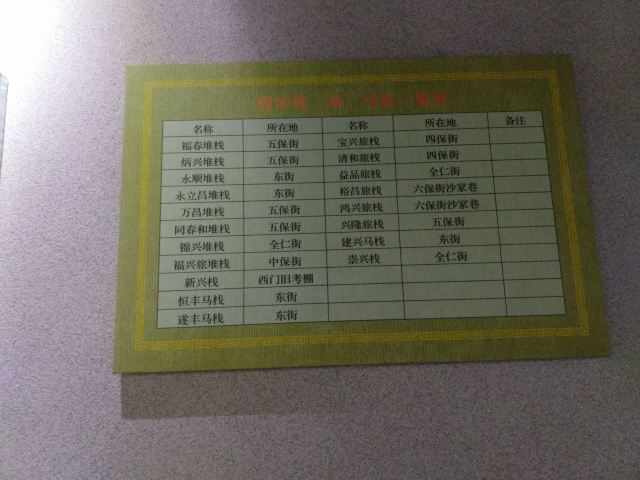 名称 所在地 名称 所在地 备注
福春堆栈 五保街 宝兴旅栈 四保街
炳兴堆栈 五保街 清和旅栈 四保街
永顺堆栈 东街 益品旅栈 全仁街
永立昌堆栈 东街 裕昌旅栈 六保街沙家巷
万昌堆栈 五保街 鸿兴旅栈 六保街沙家巷
同春和堆栈 五保街 兴隆旅栈 五保街
锦兴堆栈 全仁街 建兴马栈 东街
福兴旅堆栈 中保街 崇兴栈 全仁街
新兴栈 西门旧考棚
恒丰马栈 东街
遂丰马栈 东街